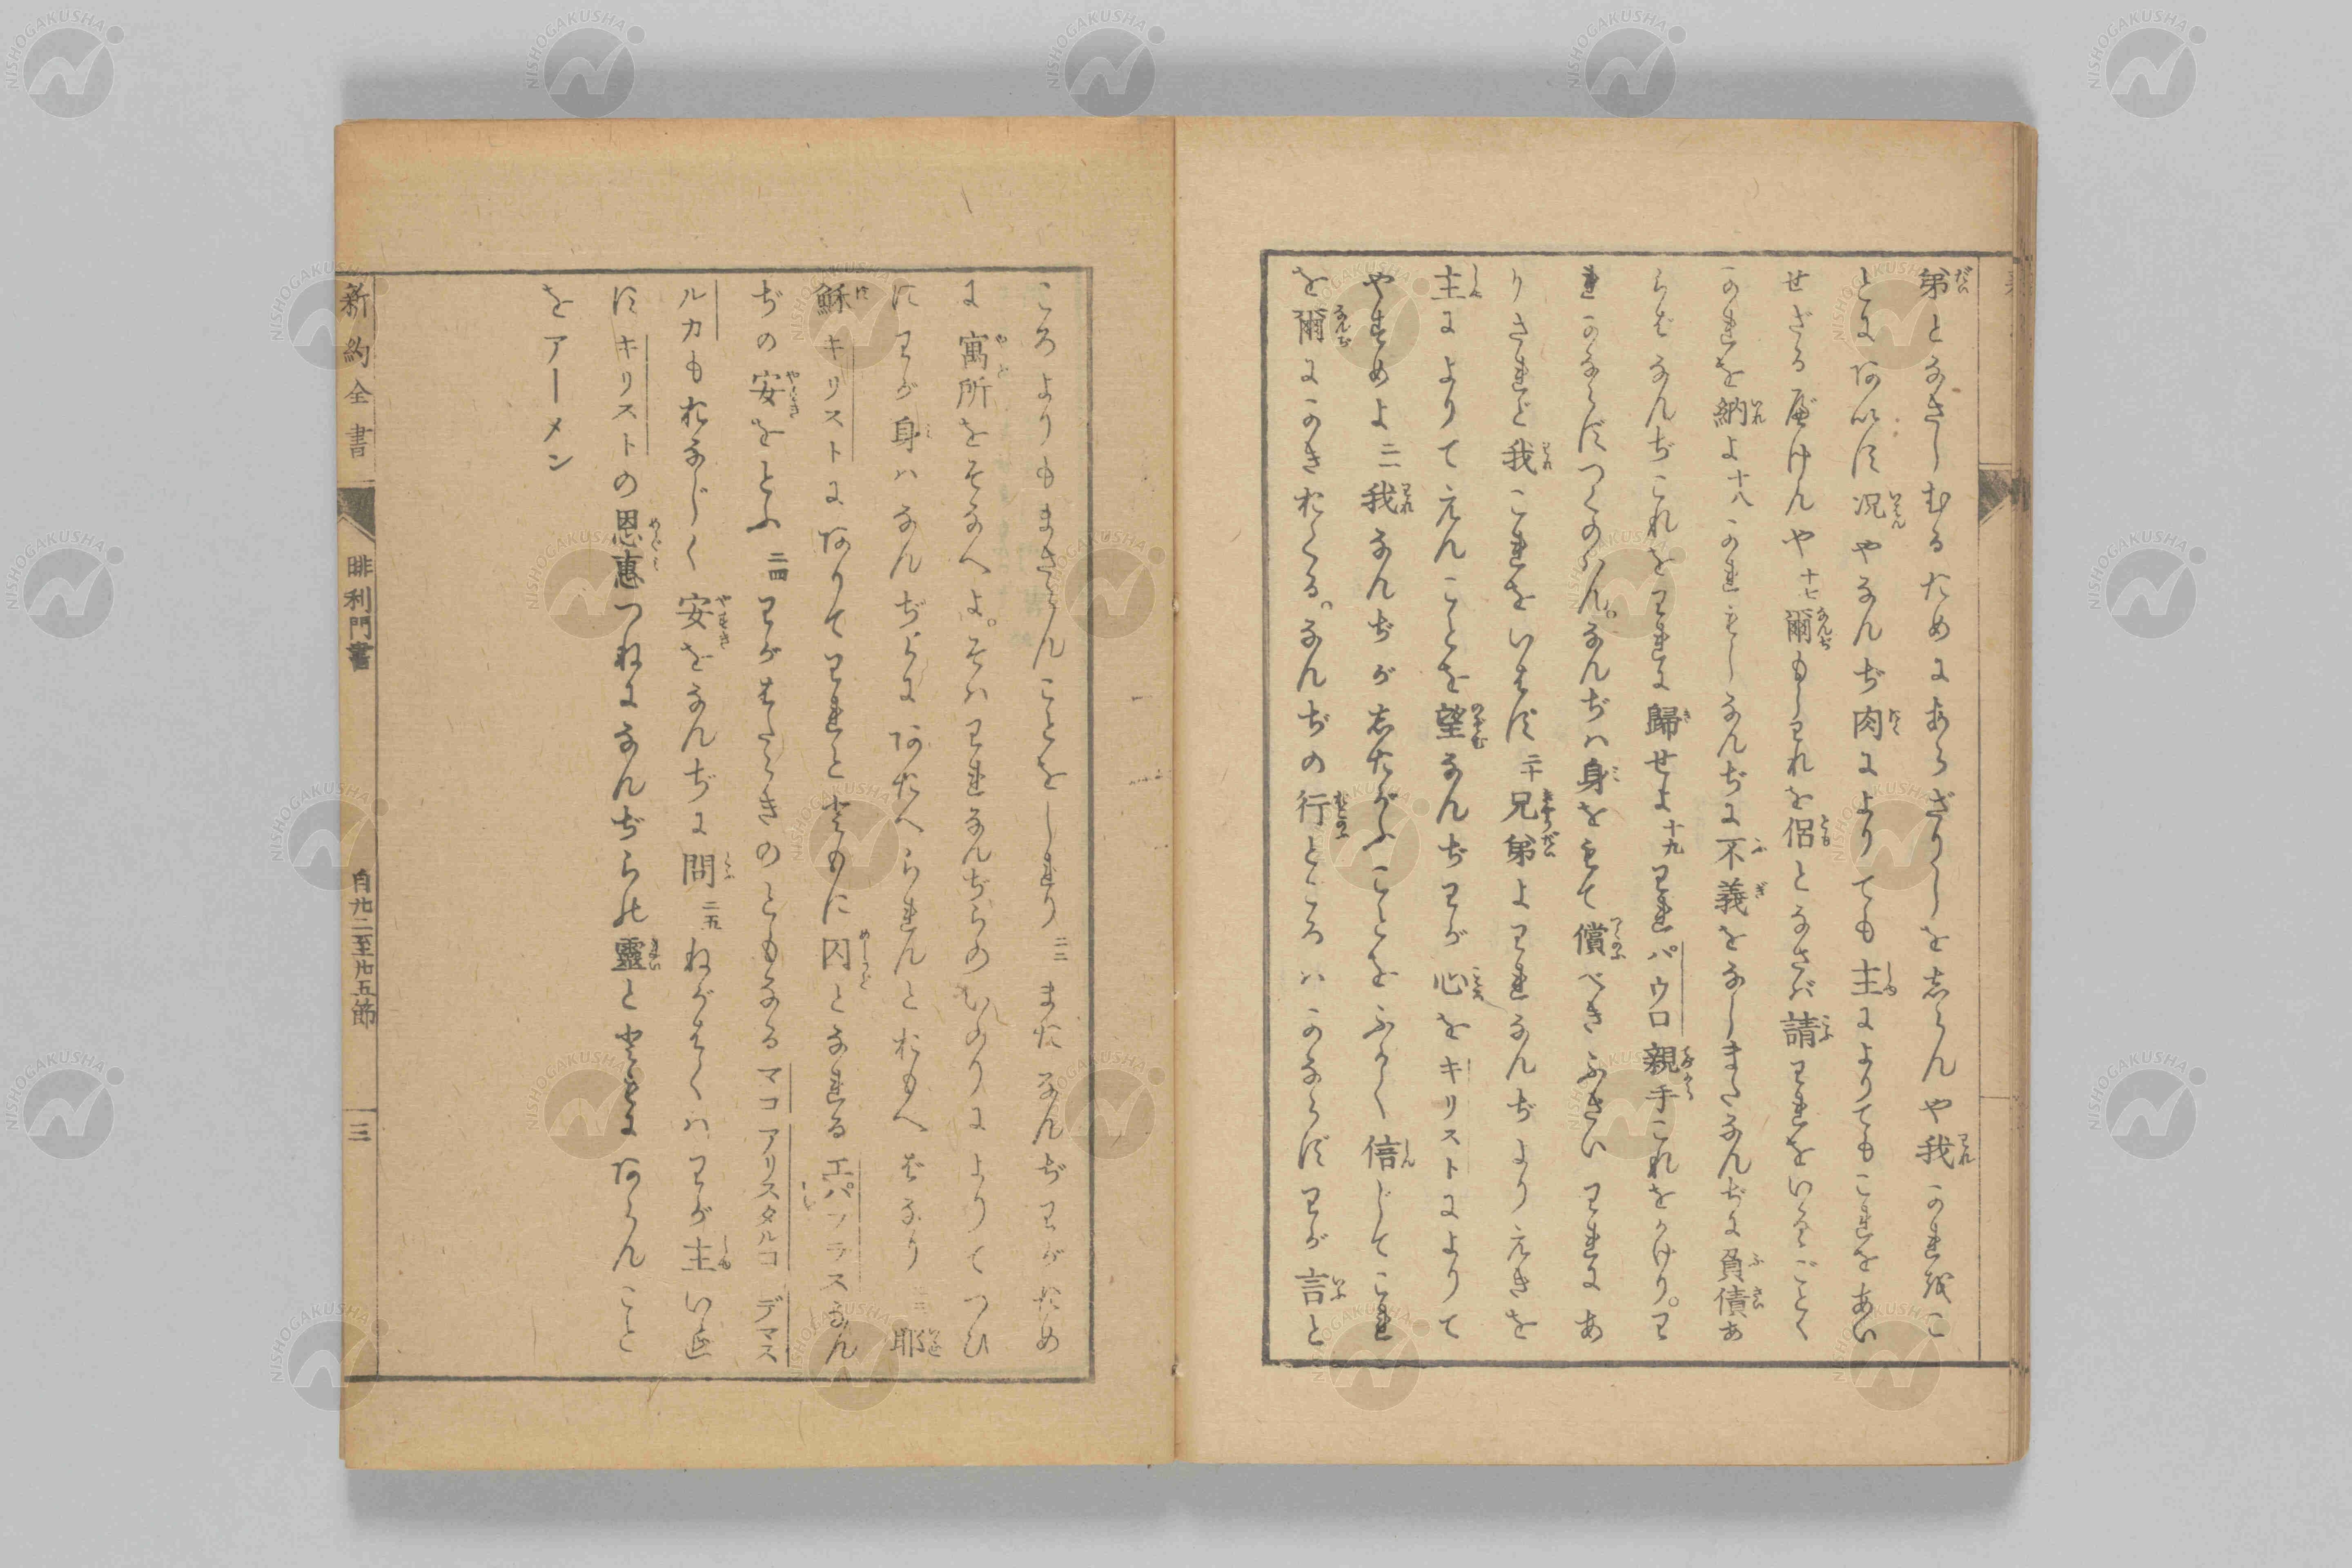 弟となさしむるためにあらざりしを志らんや我かれ越こ
とにあいす况やなんぢ肉によりても主によりてもこれをあい
せざる可けんや十七爾もしわれを侶となさば請われをいるゝごとく
かれを納よ十八かれもしなんぢに不義をなしまたなんぢに負債あ
らばなんぢこれをわれに歸せよ十九われパウロ親手これをかけり。わ
れかならずつくのはん。なんぢハ身をもて償べきふさいわれにあ
りされど我これをいはず二十兄弟よわれなんぢよりえきを
主によりてえんことを望なんぢわが心をキリストによりて
やすめよ二一我なんぢが志たがふことをふかく信じてこれ
を爾にかきおくる。なんぢの行ところハかならずわが言と
ころよりもまさらんことをしれり二二またなんぢわがため
に寓所をそなへよ。そハわれなんぢらのいのりによりてつひ
にわが身ハなんぢらにあたへられんとおもへばなり二三耶
穌キリストにありてわれとともに囚となれるエパフラスなん
ぢの安をとふ二四わがはたらきのともなるマコアリスタルコデマス
ルカもおなじく安をなんぢに問二五ねがはくハわが主いゑ
すキリストの恩惠つねになんぢらの靈とともにあらんこと
をアーメン
新約全書
腓利門書
自廿二至廿五節
三
NISHOGAKUSHA